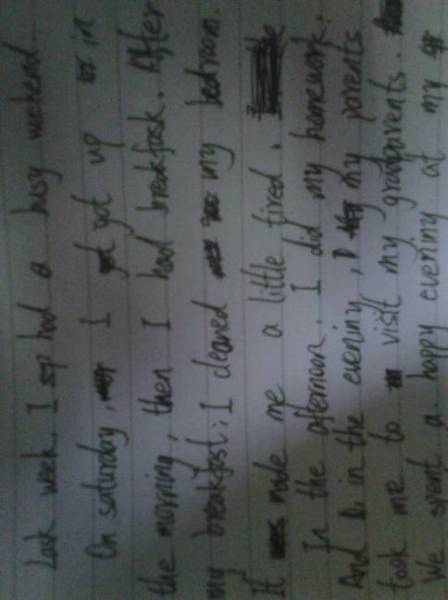 Last week I had a busy weekend.
On saturday, I got up in
the morning, then I had breakfask. After
my breakfast, I cleaned my bedroom.
It made me a little tired.
In the afternoon, I did my homework.
And in the evening, my parents
took me to visit my grandparents.
We spent a happy evening at my